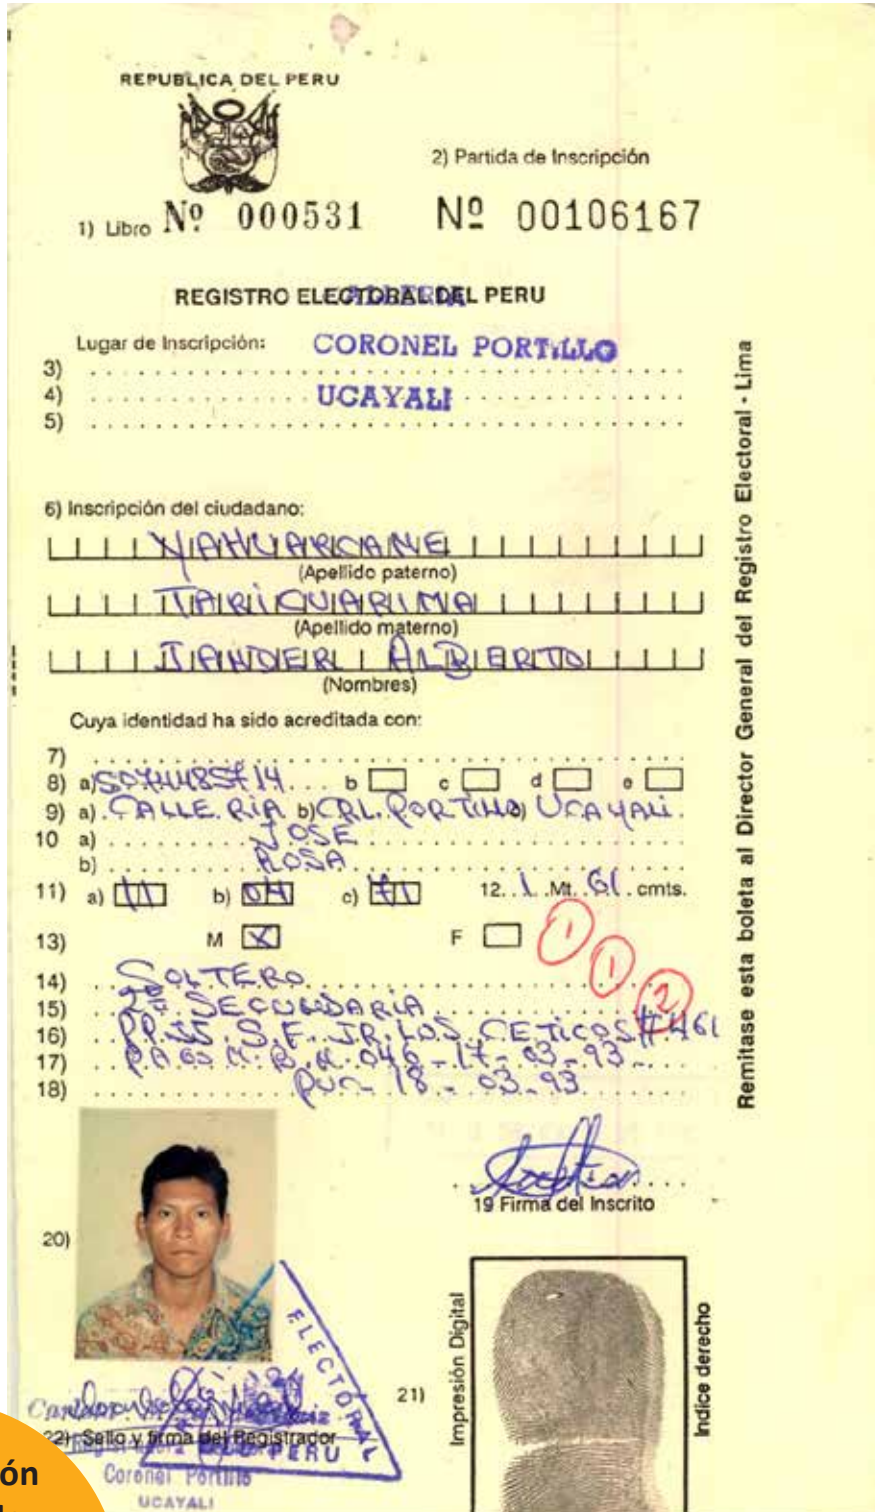 REPUBLICA DEL PERU
2) Partida de Inscripción
1) Libro Nº 000531 Nº 00106167
REGISTRO ELECTORAL DEL PERU
CALLERIA
Lugar de Inscripción: CORONEL PORTILLO
3)
4) UCAYALI
5)
6) Inscripción del ciudadano:
YAHUARCANE
(Apellido paterno)
TARICUARIMA
(Apellido materno)
JANDER ALBERTO
(Nombres)
Cuya identidad ha sido acreditada con:
7)
8) a) b c d e
9) a) CALLERIA b) CRL. PORTILLO UCAYALI
10 a) JOSE
b) ROSA
11) a) 11 b) 04 c) 71 12. 1 Mt. 61 cmts.
13) M X F 1
1
14) SOLTERO 2
15) 2º SECUNDARIA
16) PP.JJ. S.F. JR. LOS CETICOS # 461
17) PAGO M.B.N. 046-17-03-93
18) PUC- 18-03-93
19 Firma del Inscrito
20)
ELECTORAL
PERU
21)
Impresión Digital
Indice derecho
22) Sello y firma del Registrador
Coronel Portillo
UCAYALI
Remítase esta boleta al Director General del Registro Electoral - Lima
ón